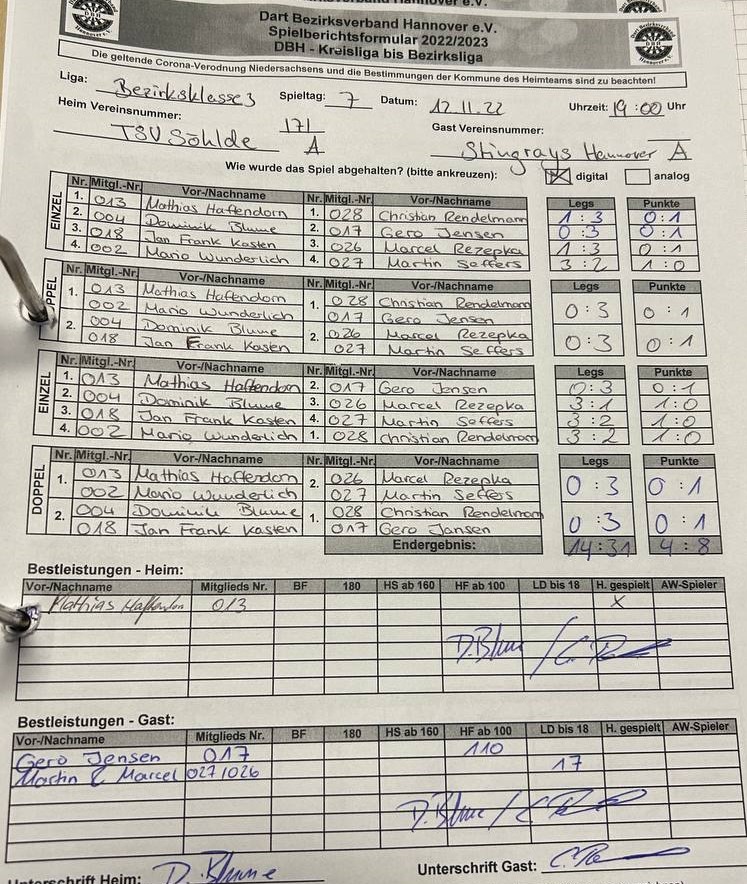 Dart Bezirksverband Hannover e.V.
Spielberichtsformular 2022/2023
DBH - Kreisliga bis Bezirksliga
Die geltende Corona-Verodnung Niedersachsens und die Bestimmungen der Kommune des Heimteams sind zu beachten!
Liga: Bezirksklasse 3 Spieltag: 7 Datum: 12.11.22 Uhrzeit: 19:00 Uhr
Heim Vereinsnummer: 171 Gast Vereinsnummer:
TSV Söhlde A Stingrays Hannover A
Wie wurde das Spiel abgehalten? (bitte ankreuzen): digital analog
EINZEL Nr. Mitgl.-Nr. Vor-/Nachname Nr. Mitgl.-Nr. Vor-/Nachname Legs Punkte
1. 013 Mathias Haftendorn 1. 028 Christian Rendelmann 1:3 0:1
2. 004 Dominik Blume 2. 017 Gero Jensen 0:3 0:1
3. 018 Jan Frank Kasten 3. 026 Marcel Rezepka 1:3 0:1
4. 002 Mario Wunderlich 4. 027 Martin Seffers 3:2 1:0
Nr. Mitgl.-Nr. Vor-/Nachname Nr. Mitgl.-Nr. Vor-/Nachname Legs Punkte
1. 013 Mathias Haftendorn 1. 028 Christian Rendelmann 0:3 0:1
002 Mario Wunderlich 017 Gero Jensen
2. 004 Dominik Blume 2. 026 Marcel Rezepka 0:3 0:1
018 Jan Frank Kasten 027 Martin Seffers
EINZEL Nr. Mitgl.-Nr. Vor-/Nachname Nr. Mitgl.-Nr. Vor-/Nachname Legs Punkte
1. 013 Mathias Haftendorn 2. 017 Gero Jensen 0:3 0:1
2. 004 Dominik Blume 3. 026 Marcel Rezepka 3:1 1:0
3. 018 Jan Frank Kasten 4. 027 Martin Seffers 3:2 1:0
4. 002 Mario Wunderlich 1. 028 Christian Rendelmann 3:2 1:0
DOPPEL Nr. Mitgl.-Nr. Vor-/Nachname Nr. Mitgl.-Nr. Vor-/Nachname Legs Punkte
1. 013 Mathias Haftendorn 2. 026 Marcel Rezepka 0:3 0:1
002 Mario Wunderlich 027 Martin Seffers
2. 004 Dominik Blume 1. 028 Christian Rendelmann 0:3 0:1
018 Jan Frank Kasten 017 Gero Jansen
Endergebnis: 14:31 4:8
Bestleistungen - Heim:
Vor-/Nachname Mitglieds Nr. BF 180 HS ab 160 HF ab 100 LD bis 18 H. gespielt AW-Spieler
Mathias 013 X
D. Blume /
Bestleistungen - Gast:
Vor-/Nachname Mitglieds Nr. BF 180 HS ab 160 HF ab 100 LD bis 18 H. gespielt AW-Spieler
Gero Jensen 017 110
Martin & Marcel 027/026 17
D. Blume /
Unterschrift Heim: D. Blume Unterschrift Gast: